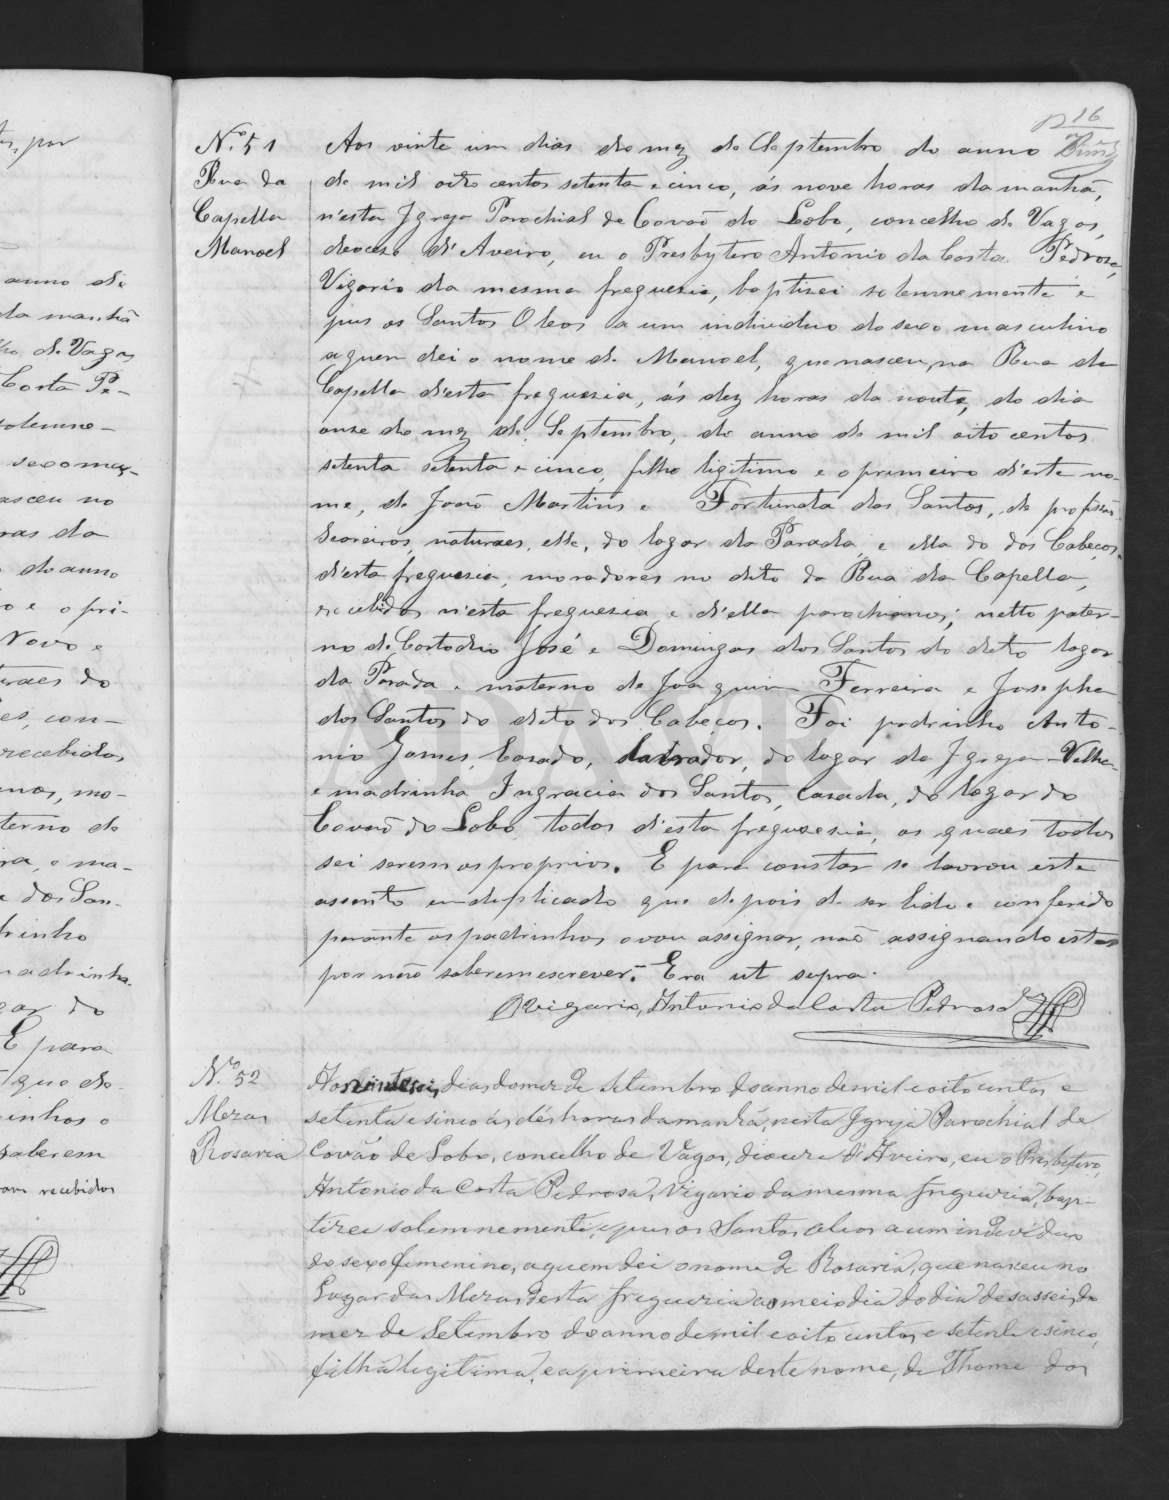 16
Nº 51
Rua da
Capella
Manoel
Aos vinte um dias do mez de Septembro do anno
de mil oito centos setenta e cinco, ás nove horas da manhã,
n'esta Igreja Parochial de Covaõ do Lobo, concelho de Vagos,
diocese d'Aveiro, eu o Presbytero Antonio da Costa Pedrosa,
Vigario da mesma freguesia, baptisei solemnemente e
pus os Santos Oleos a um individuo do sexo masculino
a quem dei o nome de Manoel, que nasceu na Rua da
Capella d'esta freguesia, ás dez horas da noute, do dia
onze do mez de Septembro, do anno de mil oito centos
setenta setenta e cinco, filho ligitimo e o primeiro d'este no-
me, de Joaõ Martins e Fortunata dos Santos, de profissaõ
Seareiros, naturaes, elle, do logar da Parada, e ella do dos Cabeços,
d'esta freguesia, moradores no dito da Rua da Capella,
recebidos n'esta freguesia e d'ella parochianos; netto pater-
no de Costodio José e Domingas dos Santos do dito logar
da Parada e materno de Joaquim Ferreira e Josepha
dos Santos do dito dos Cabeços. Foi padrinho Anto-
nio Gomes, Casado, lavrador, do logar da Igreja-Velha
e madrinha Ingracia dos Santos, casada, do logar do
Covaõ do Lobo todos d'esta freguesia, os quaes todos
sei serem os proprios. E para constar se lavrou este
assento em duplicado que depois de ser lido e conferido
perante os padrinhos o vou assignar, naõ assignando estes
por naõ saberem escrever. Era ut supra.
O Vigario, Antonio da Costa Pedrosa
Nº 52
Mezas
Rosaria
Aos vinteseis dias do mez de Setimbro do anno de mil e oito centos e
setenta e sinco ás dés horas da manhã, nesta Igreja Parochial de
Covão de Lobo, concelho de Vagos, diocize d'Aveiro, eu o Presbitero,
Antonio da Costa Pedrosa, Vigario da mesma freguezia, bap-
tizei solemnemente, e pus os Santos olios a um individuo
do sexo femenino, a quem dei o nome de Rosaria, que nasceu no
Lugar das Mezas desta freguezia ao meio dia do dia desasseis do
mez de Setimbro do anno de mil e oito centos e setenta e sinco,
filha legitima, e a primeira deste nome, de Thome dos
anno de
da manhã
de Vagos
Costa Pe-
solemne-
nasceu no
do anno
Novo e
recebidos
terno de
dos San-
E para
que de
saberem
recebidos